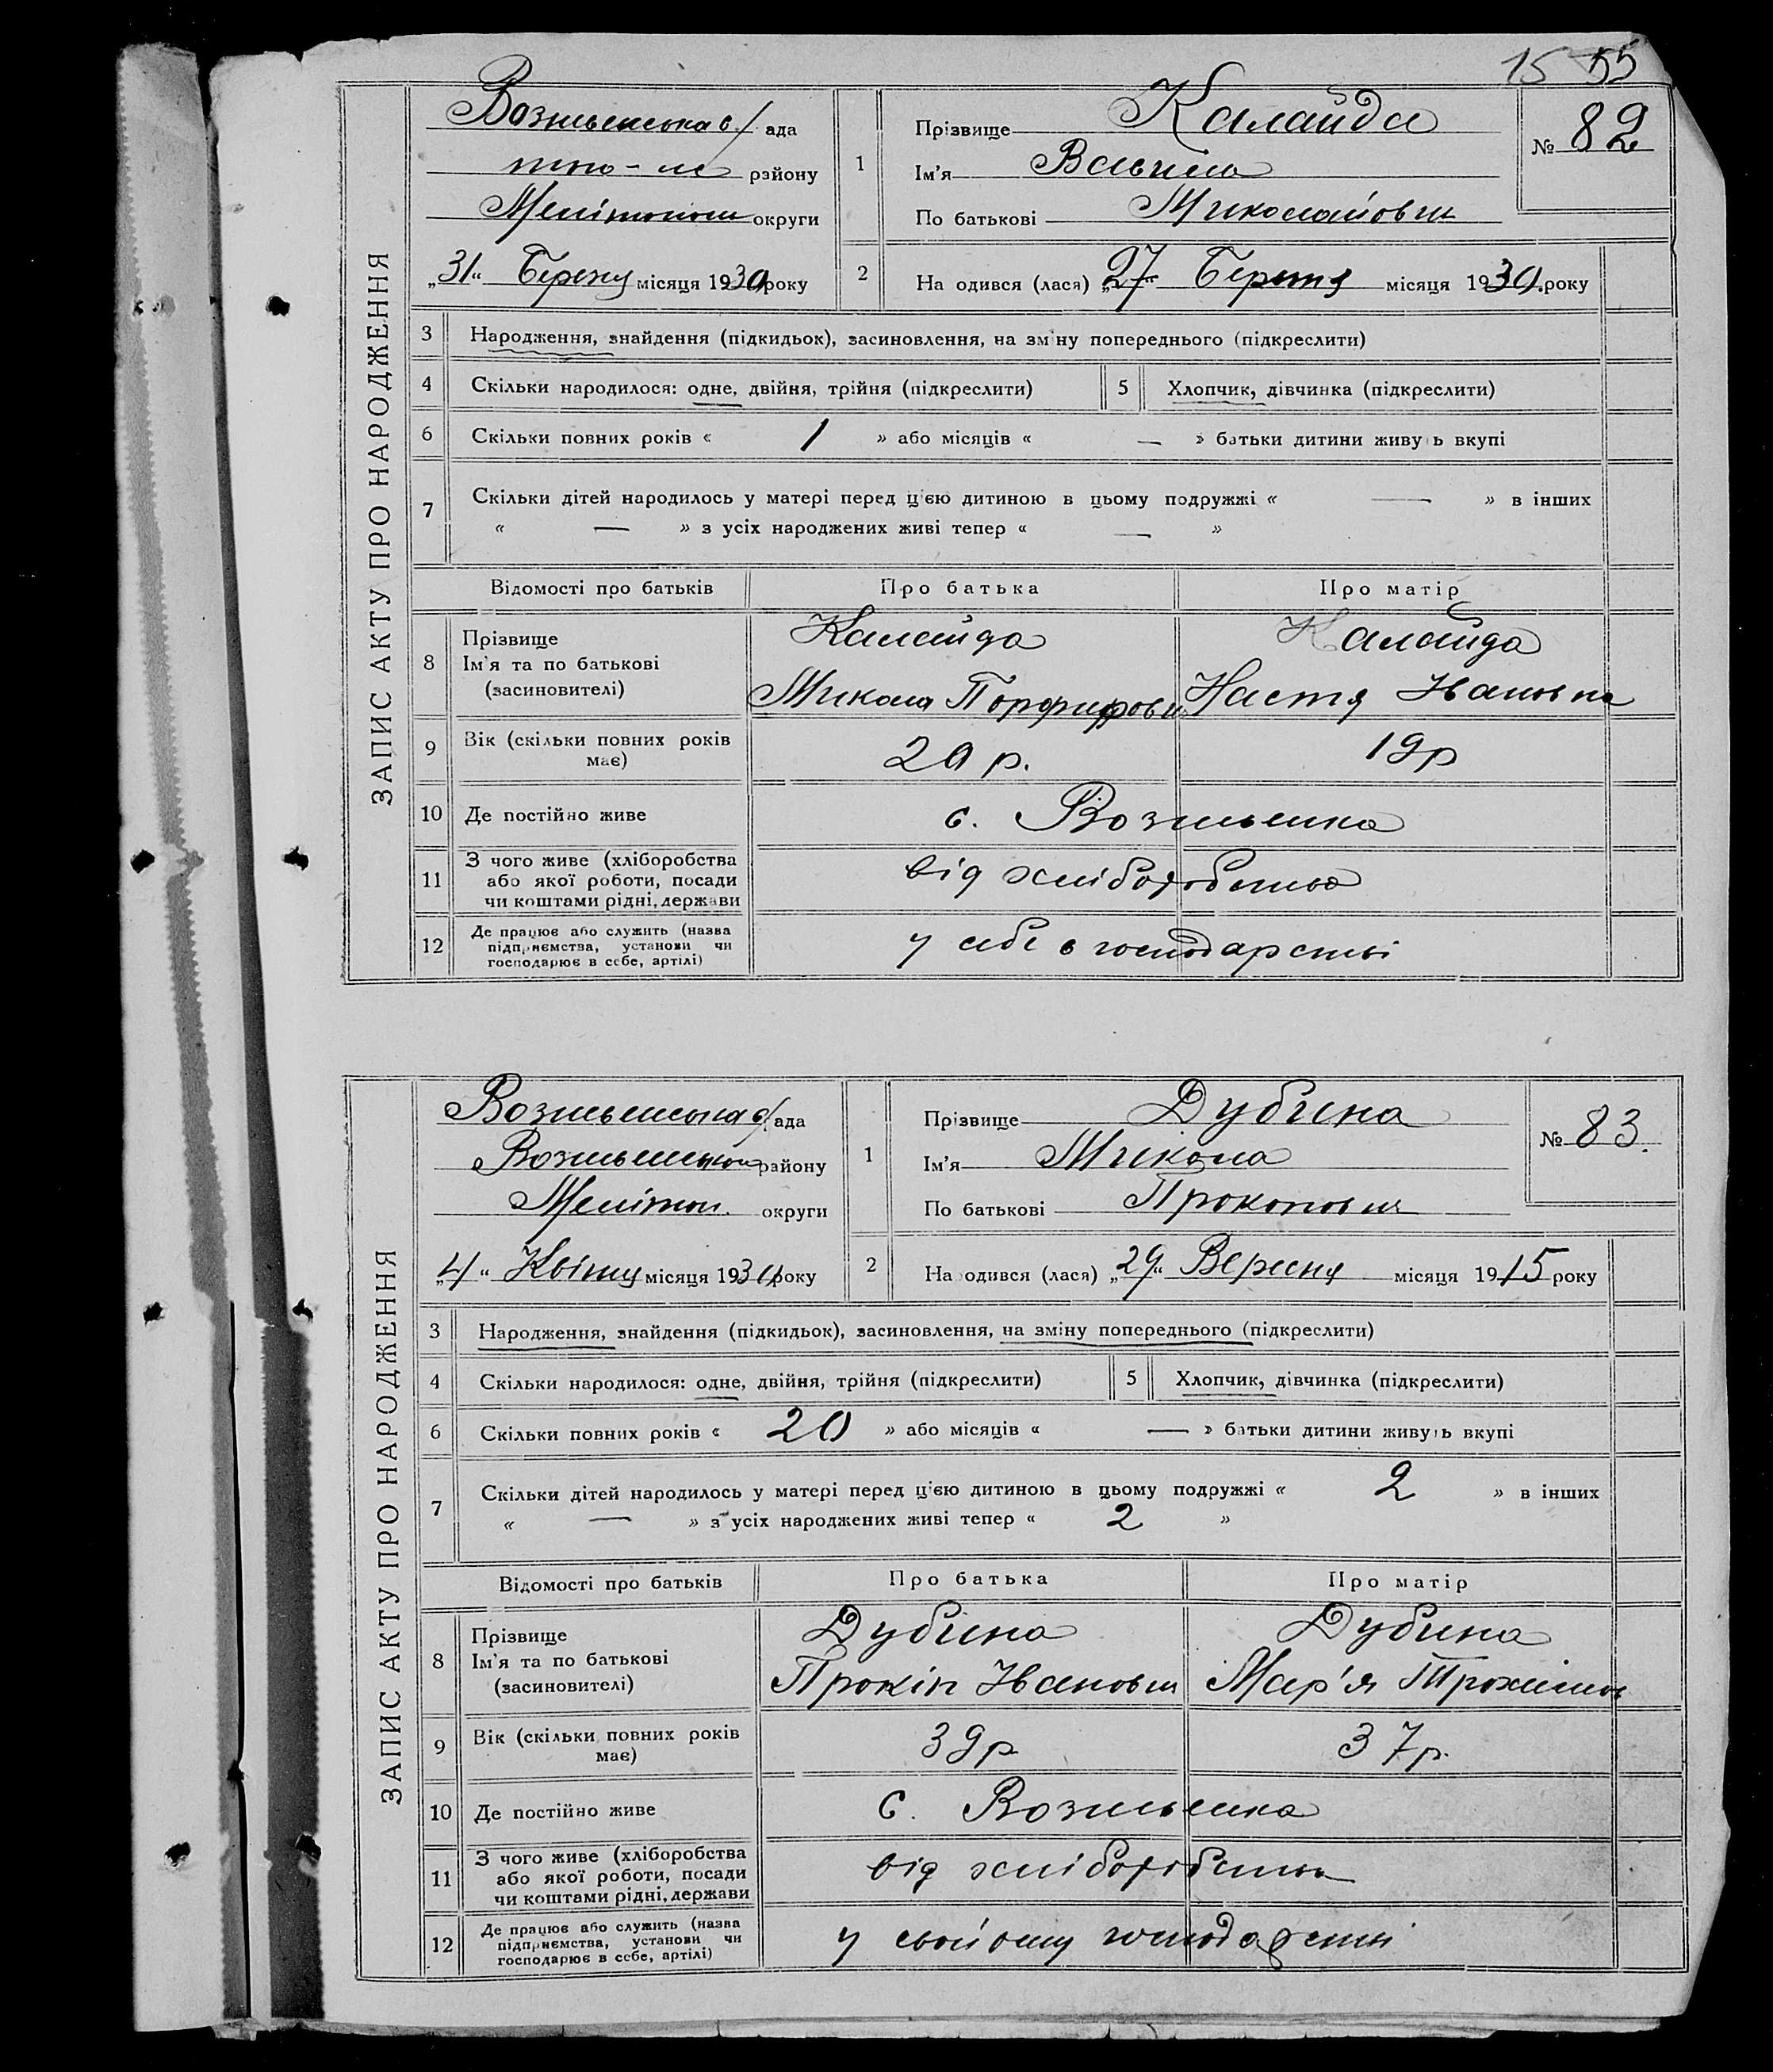 15 55
ЗАПИС АКТУ ПРО НАРОДЖЕННЯ
Вознесенська с/ ада
району
Мелітопол округи
„31“ Березня місяця 1930 року
1
Прізвище Калайда
Ім'я Василь
По батькові Миколайович
№ 82
2
На одився (лася) „27“ Березня місяця 1930. року
3 Народження, знайдення (підкидьок), засиновлення, на зміну попереднього (підкреслити)
4 Скільки народилося: одне, двійня, трійня (підкреслити)
5 Хлопчик, дівчинка (підкреслити)
6 Скільки повних років « 1 » або місяців « — » батьки дитини живуь вкупі
7 Скільки дітей народилось у матері перед цією дитиною в цьому подружжі « — » в інших
« — » з усіх народжених живі тепер « — »
Відомості про батьків Про батька Про матір
8 Прізвище Калайда Калайда
Ім'я та по батькові
(засиновителі) Микола Порфирович Настя Івановна
9 Вік (скільки повних років має) 20 р. 19р
10 Де постійно живе с. Вознесенка
11 З чого живе (хліборобства
або якої роботи, посади
чи коштами рідні, держави
від хліборобства
12 Де працює або служить (назва
підприємства, установи чи
господарює в себе, артілі)
у себе в господарстві
ЗАПИС АКТУ ПРО НАРОДЖЕННЯ
Вознесенська с/ ада
Вознесенськ району
Мелітоп. округи
„4“ Квітня місяця 1930 року
1
Прізвище Дубина
Ім'я Микола
По батькові Прокопович
№ 83.
2
На одився (лася) „29“ Вересня місяця 1915 року
3 Народження, знайдення (підкидьок), засиновлення, на зміну попереднього (підкреслити)
4 Скільки народилося: одне, двійня, трійня (підкреслити)
5 Хлопчик, дівчинка (підкреслити)
6 Скільки повних років « 20 » або місяців « — » батьки дитини живуь вкупі
7 Скільки дітей народилось у матері перед цією дитиною в цьому подружжі « 2 » в інших
« — » з усіх народжених живі тепер « 2 »
Відомості про батьків Про батька Про матір
8 Прізвище Дубина Дубина
Ім'я та по батькові
(засиновителі) Прокіп Іванович Мар'я Трохимов
9 Вік (скільки повних років має) 39р 37р.
10 Де постійно живе С. Вознесенка
11 З чого живе (хліборобства
або якої роботи, посади
чи коштами рідні, держави
від хліборобства
12 Де працює або служить (назва
підприємства, установи чи
господарює в себе, артілі)
у своїому господарстві